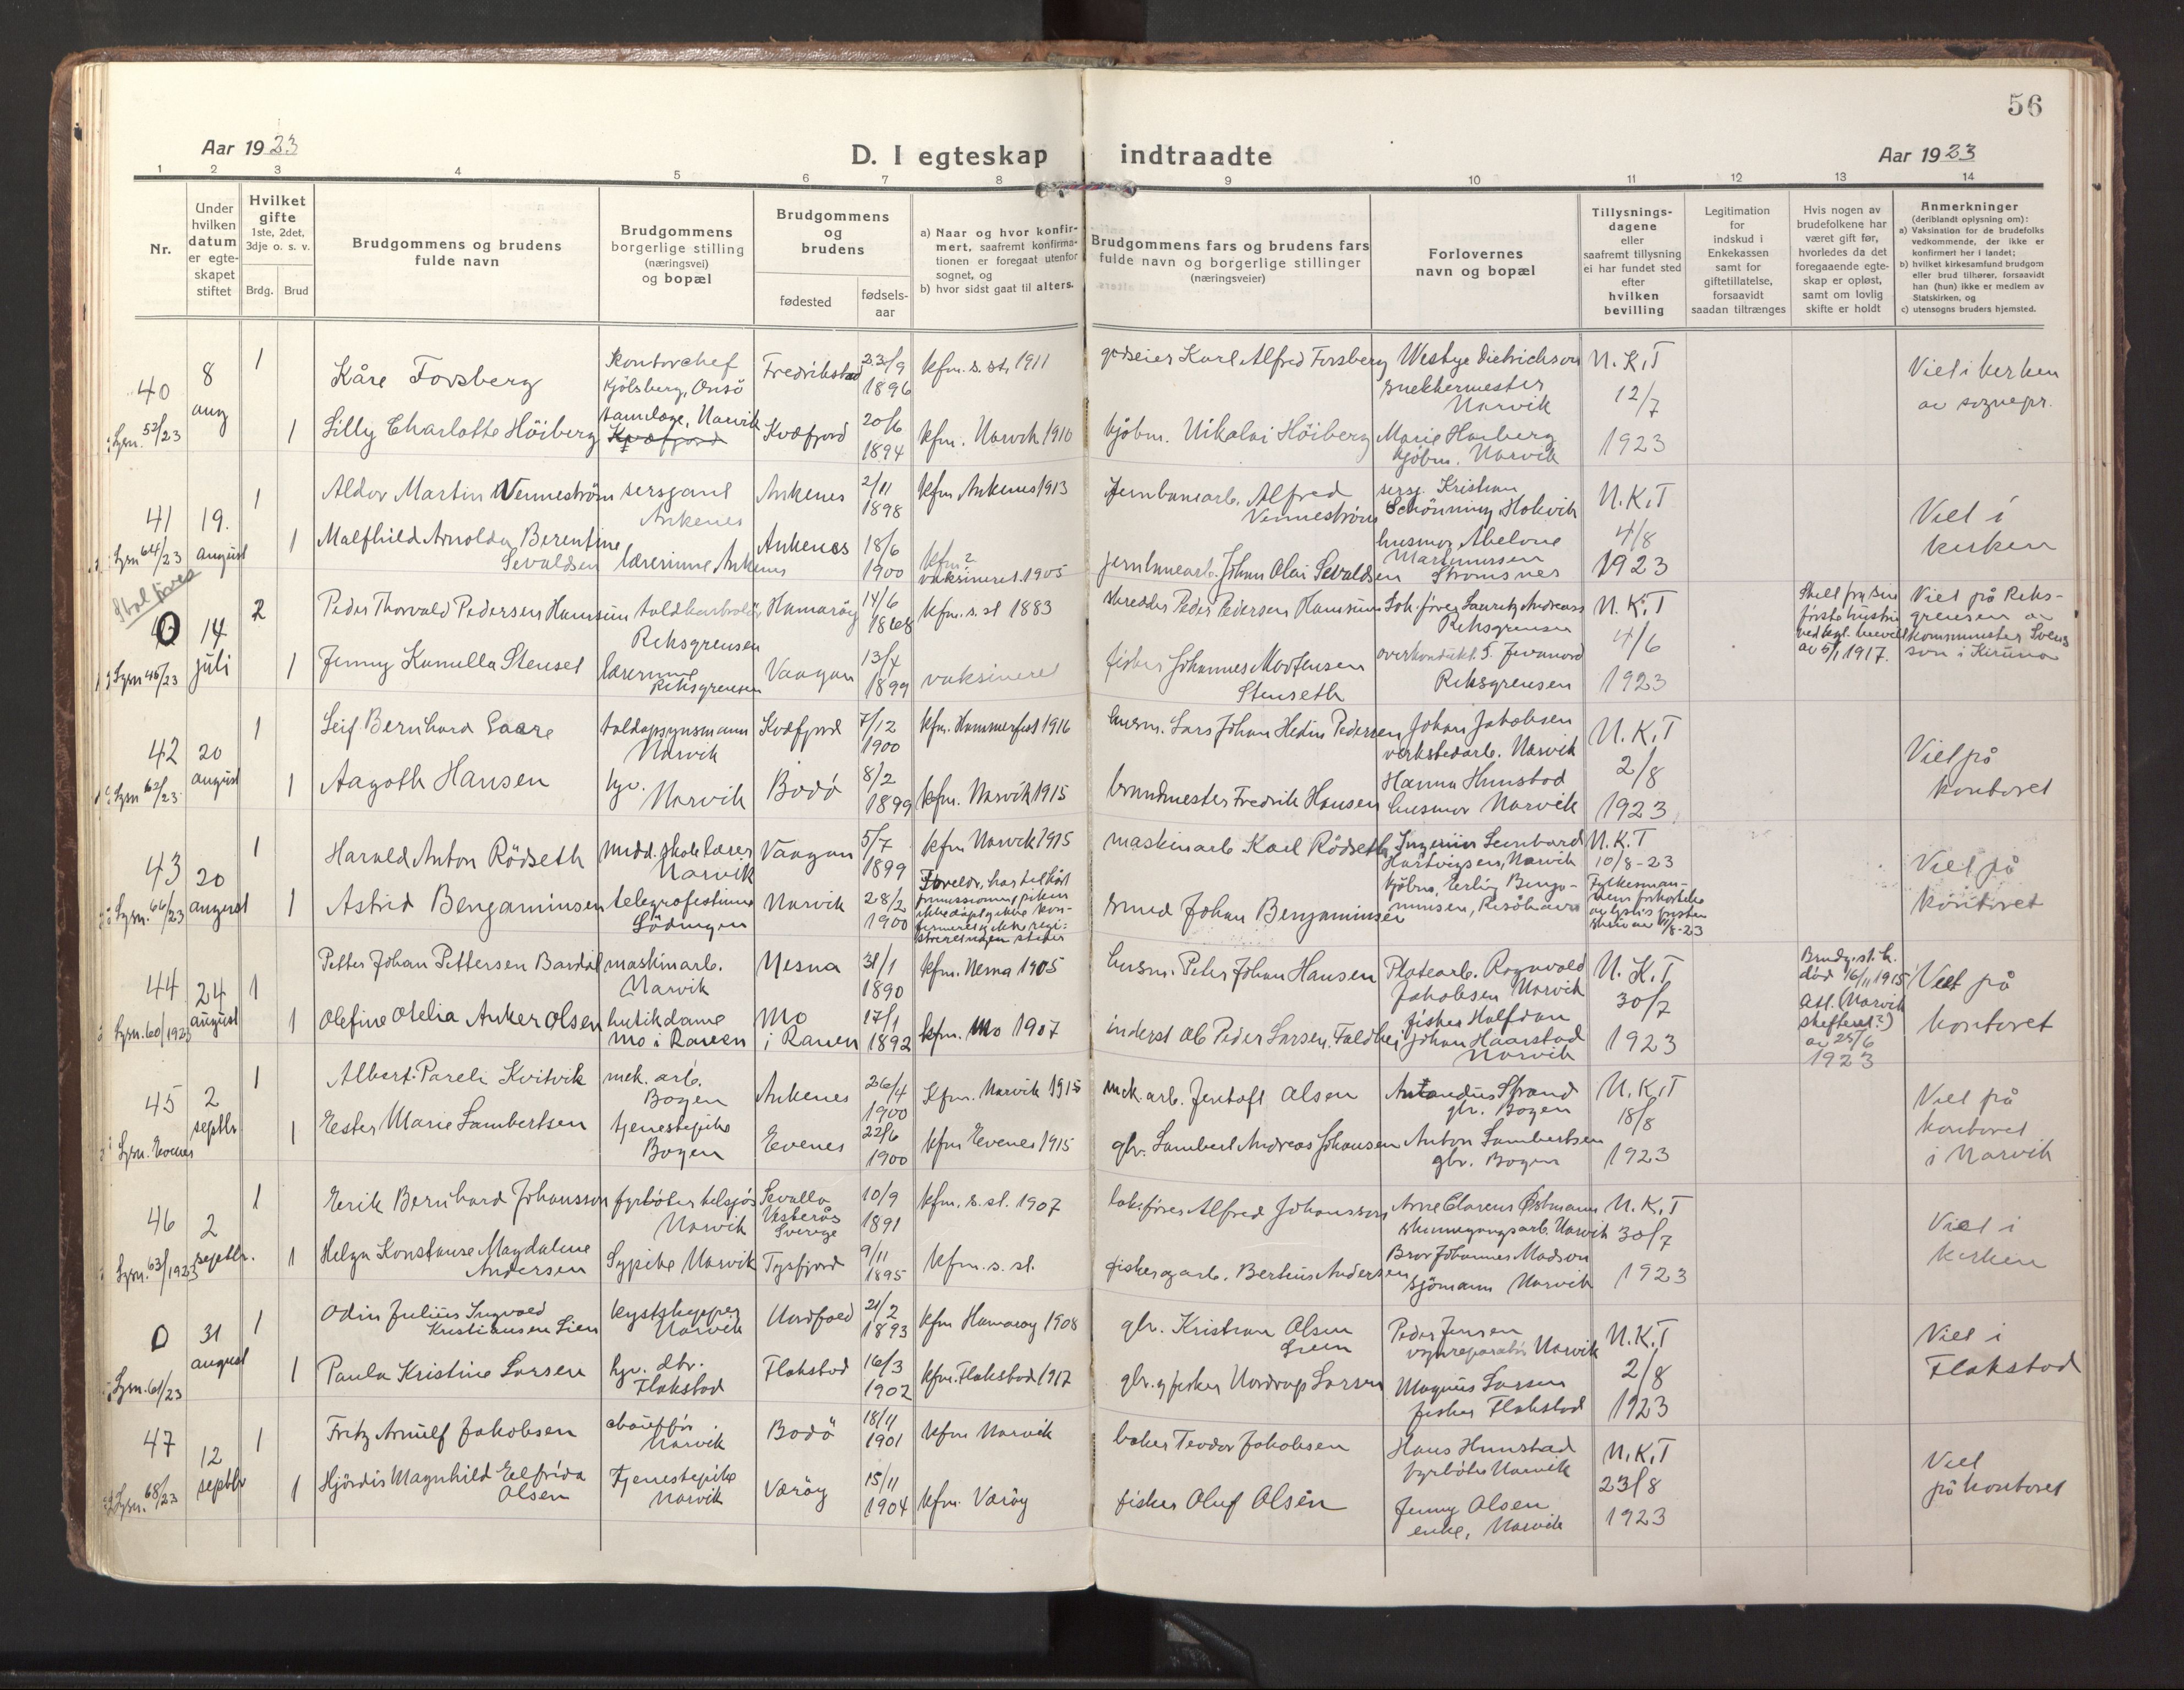 56
Aar 1923
D. I egteskap indtraadte
Aar 1923
1 2 3 4 5 6 7 8 9 10 11 12 13 14
Nr.
Under
hvilken
datum
er egte-
skapet
stiftet
Hvilket
gifte
1ste, 2det,
3dje o. s. v.
Brdg. Brud
Brudgommens og brudens
fulde navn
Brudgommens
borgerlige stilling
(næringsvei)
og bopæl
Brudgommens
og
brudens
fødested
fødsels-
aar
a) Naar og hvor konfir-
mert, saafremt konfirma-
tionen er foregaat utenfor
sognet, og
b) hvor sidst gaat til alters.
Brudgommens fars og brudens fars
fulde navn og borgerlige stillinger
(næringsveier)
Forlovernes
navn og bopæl
Tillysnings-
dagene
eller
saafremt tillysning
ei har fundet sted
efter
hvilken
bevilling
Legitimation
for
indskud i
Enkekassen
samt for
giftetillatelse,
forsaavidt
saadan tiltrænges
Hvis nogen av
brudefolkene har
været gift før,
hvorledes da det
foregaaende egte-
skap er opløst,
samt om lovlig
skifte er holdt
Anmerkninger
(deriblandt oplysning om):
a) Vaksination for de brudefolks
vedkommende, der ikke er
konfirmert her i landet;
b) hvilket kirkesamfund brudgom
eller brud tilhører, forsaavidt
han (hun) ikke er medlem av
Statskirken, og
c) utensogns bruders hjemsted.
40
Lysn. 52/23
8
aug
1
Kåre Forsberg
kontorchef
Kjölberg, Onsö
Fredrikstad
23/9
1896
kfm. s. st. 1911
godseier Karl Alfred Forsberg
Westye Dietrichson
snekkermester
Narvik
N.K.T
12/7
1923
Viet i kerken
av sognepr.
1
Lilly Charlotte Höiberg
Narvik
Kvæfjord
Kvæfjord
20/6
1894
kfm. Narvik 1910
kjöbm. Nikolai Höiberg
Marie Høiberg
kjöbm. Narvik
41
Lysn 64/23
19.
august
1
Aldor Martin Wenneström
sersjant
Ankenes
Ankenes
2/11
1898
kfm Ankenes 1913
jernbanearb. Alfred
Venneström
sersj. Kristian
Schönning, Hokvik
N.K.T
4/8
1923
Viet i
kerken
1
Malfhild Arnolda Berentine
Sevaldsen
lærerinne Ankenes
Ankenes
18/6
1900
kfm?
vaksineret 1905
jernbanearb. Johan Olai Sevaldsen
husmor Abelone
Martinussen
Strømsnes
Skal föres
0
Lysn 46/23
14
juli
2
Peder Thorvald Pedersen Hamsun
toldkontrolör
Riksgrensen
Hamaröy
14/6
1868
kfm. s. st 1883
skredder Peder Pedersen Hamsun
Lok. förer Lauritz Andreass
Riksgrensen
N.K.T
4/6
1923
Skilt fra sin
förste hustru
ved kgl. bevill
av 5/1 1917.
Viet på Riks-
grensen av
kommunister Svens
son i Kiruna
1
Jenny Kamilla Stenset
lærerinne
Riksgrensen
Vaagan
13/4
1899
vaksineret
fisker Johannes Mortensen
Stenseth
overkondukt. J. Jevanord
Riksgrensen
42
Lysn 62/23
20
august
1
Leif Bernhard Gaare
toldopsynsmann
Narvik
Kvæfjord
7/12
1900
kfm. Hammerfest 1916
husm. Lars Johan Hedin Pedersen
Johan Jakobsen
verkstedarb. Narvik
N.K.T
2/8
1923
Viet på
kontoret
1
Aagoth Hansen
hv.
Narvik
Bodö
8/2
1899
kfm. Narvik 1915
brandmester Fredrik Hansen
Hanna Hunstad
husmor Narvik
43
Lysn. 66/23
20
august
1
Harald Anton Rödseth
midd. skolelærer
Narvik
Vaagan
5/7
1899
kfm Narvik 1915
maskinarb Karl Rödseth
Ingeniör Lembard
Hartvigsen, Narvik
N.K.T
10/8-23
Viet på
kontoret
1
Astrid Bengaminsen
telegrafistinne
Lödingen
Narvik
28/2
1900
smed Johan Benjaminsen
kjöbm. Erling Benja-
minsen, Risöhavn
44
Lysn. 60/1923
24
august
1
Petter Johan Pettersen Bardal
maskinarb.
Narvik
Nesna
31/1
1890
kfm. Nesna 1905
husm. Peter Johan Hansen
Platearb. Rognvald
Jakobsen Narvik
N.K.T
30/7
1923
Brudg. st. h.
död 16/11 1915
att. (Narvik
skifteret?)
av 25/6
1923
Viet på
kontoret
1
Olefine Otelia Anker Olsen
butikdame
Mo i Ranen
Mo
i Ranen
17/1
1892
kfm. Mo 1907
inderst Ole Peder Larsen
fisker Halfdan
Johan Haarstad
Narvik
45
2
septbr
1
Albert Pareli Kvitvik
mek. arb.
Bogen
Ankenes
26/4
1900
kfm. Narvik 1915
mek. arb. Jentoft Olsen
Strand
gbr. Bogen
N.K.T
18/8
1923
Viet på
kontoret
i Narvik
1
Ester Marie Lambertsen
tjenestepike
Bogen
Evenes
22/6
1900
kfm Evenes 1915
gbr. Lambert Andreas Johansen
Anton Lambertsen
gbr. Bogen
46
Lysn. 63/1923
2
septbr.
1
Erik Bernhard Johansson
fyrböter
Narvik
Sevalla
Vesterås
Sverige
10/9
1891
kfm. s. st. 1907
lok. förer Alfred Johansson
Arne Clarens Østmann
skinnegangsarb. Narvik
N.K.T
30/7
1923
Viet i
kerken
1
Helga Konstanse Magdalene
Andersen
Sypike Narvik
Tysfjord
9/11
1895
kfm. s. st.
fisker og arb. Bertius Andersen
Bror Johannes Madson
sjömann Narvik
0
Lysn. 61/23
31
august
1
Odin Julius Ingvald
Kristiansen Lien
kystskipper
Narvik
Nordfold
21/2
1893
kfm Hamaröy 1908
gbr. Kristian Olsen
Lien
Peder Jensen
vognreparatör Narvik
N.K.T
2/8
1923
Viet i
Flakstad
1
Paula Kristine Larsen
hv. dtr.
Flakstad
Flakstad
16/3
1902
kfm. Flakstad 1917
gbr. og fisker Nordrup Larsen
Magnus Larsen
fisker Flakstad
47
Lysn. 68/23
12
septbr
1
Fritz Arnulf Jakobsen
chaufför
Narvik
Bodö
18/11
1901
kfm Narvik
baker Teodor Jakobsen
Hans Hunstad
fyrböter Narvik
N.K.T
23/8
1923
Viet
på kontoret
1
Hjördis Magnhild Elfrida
Olsen
Tjenestepike
Narvik
Væröy
15/11
1904
kfm. Væröy
fisker Oluf Olsen
Jenny Olsen
enke, Narvik